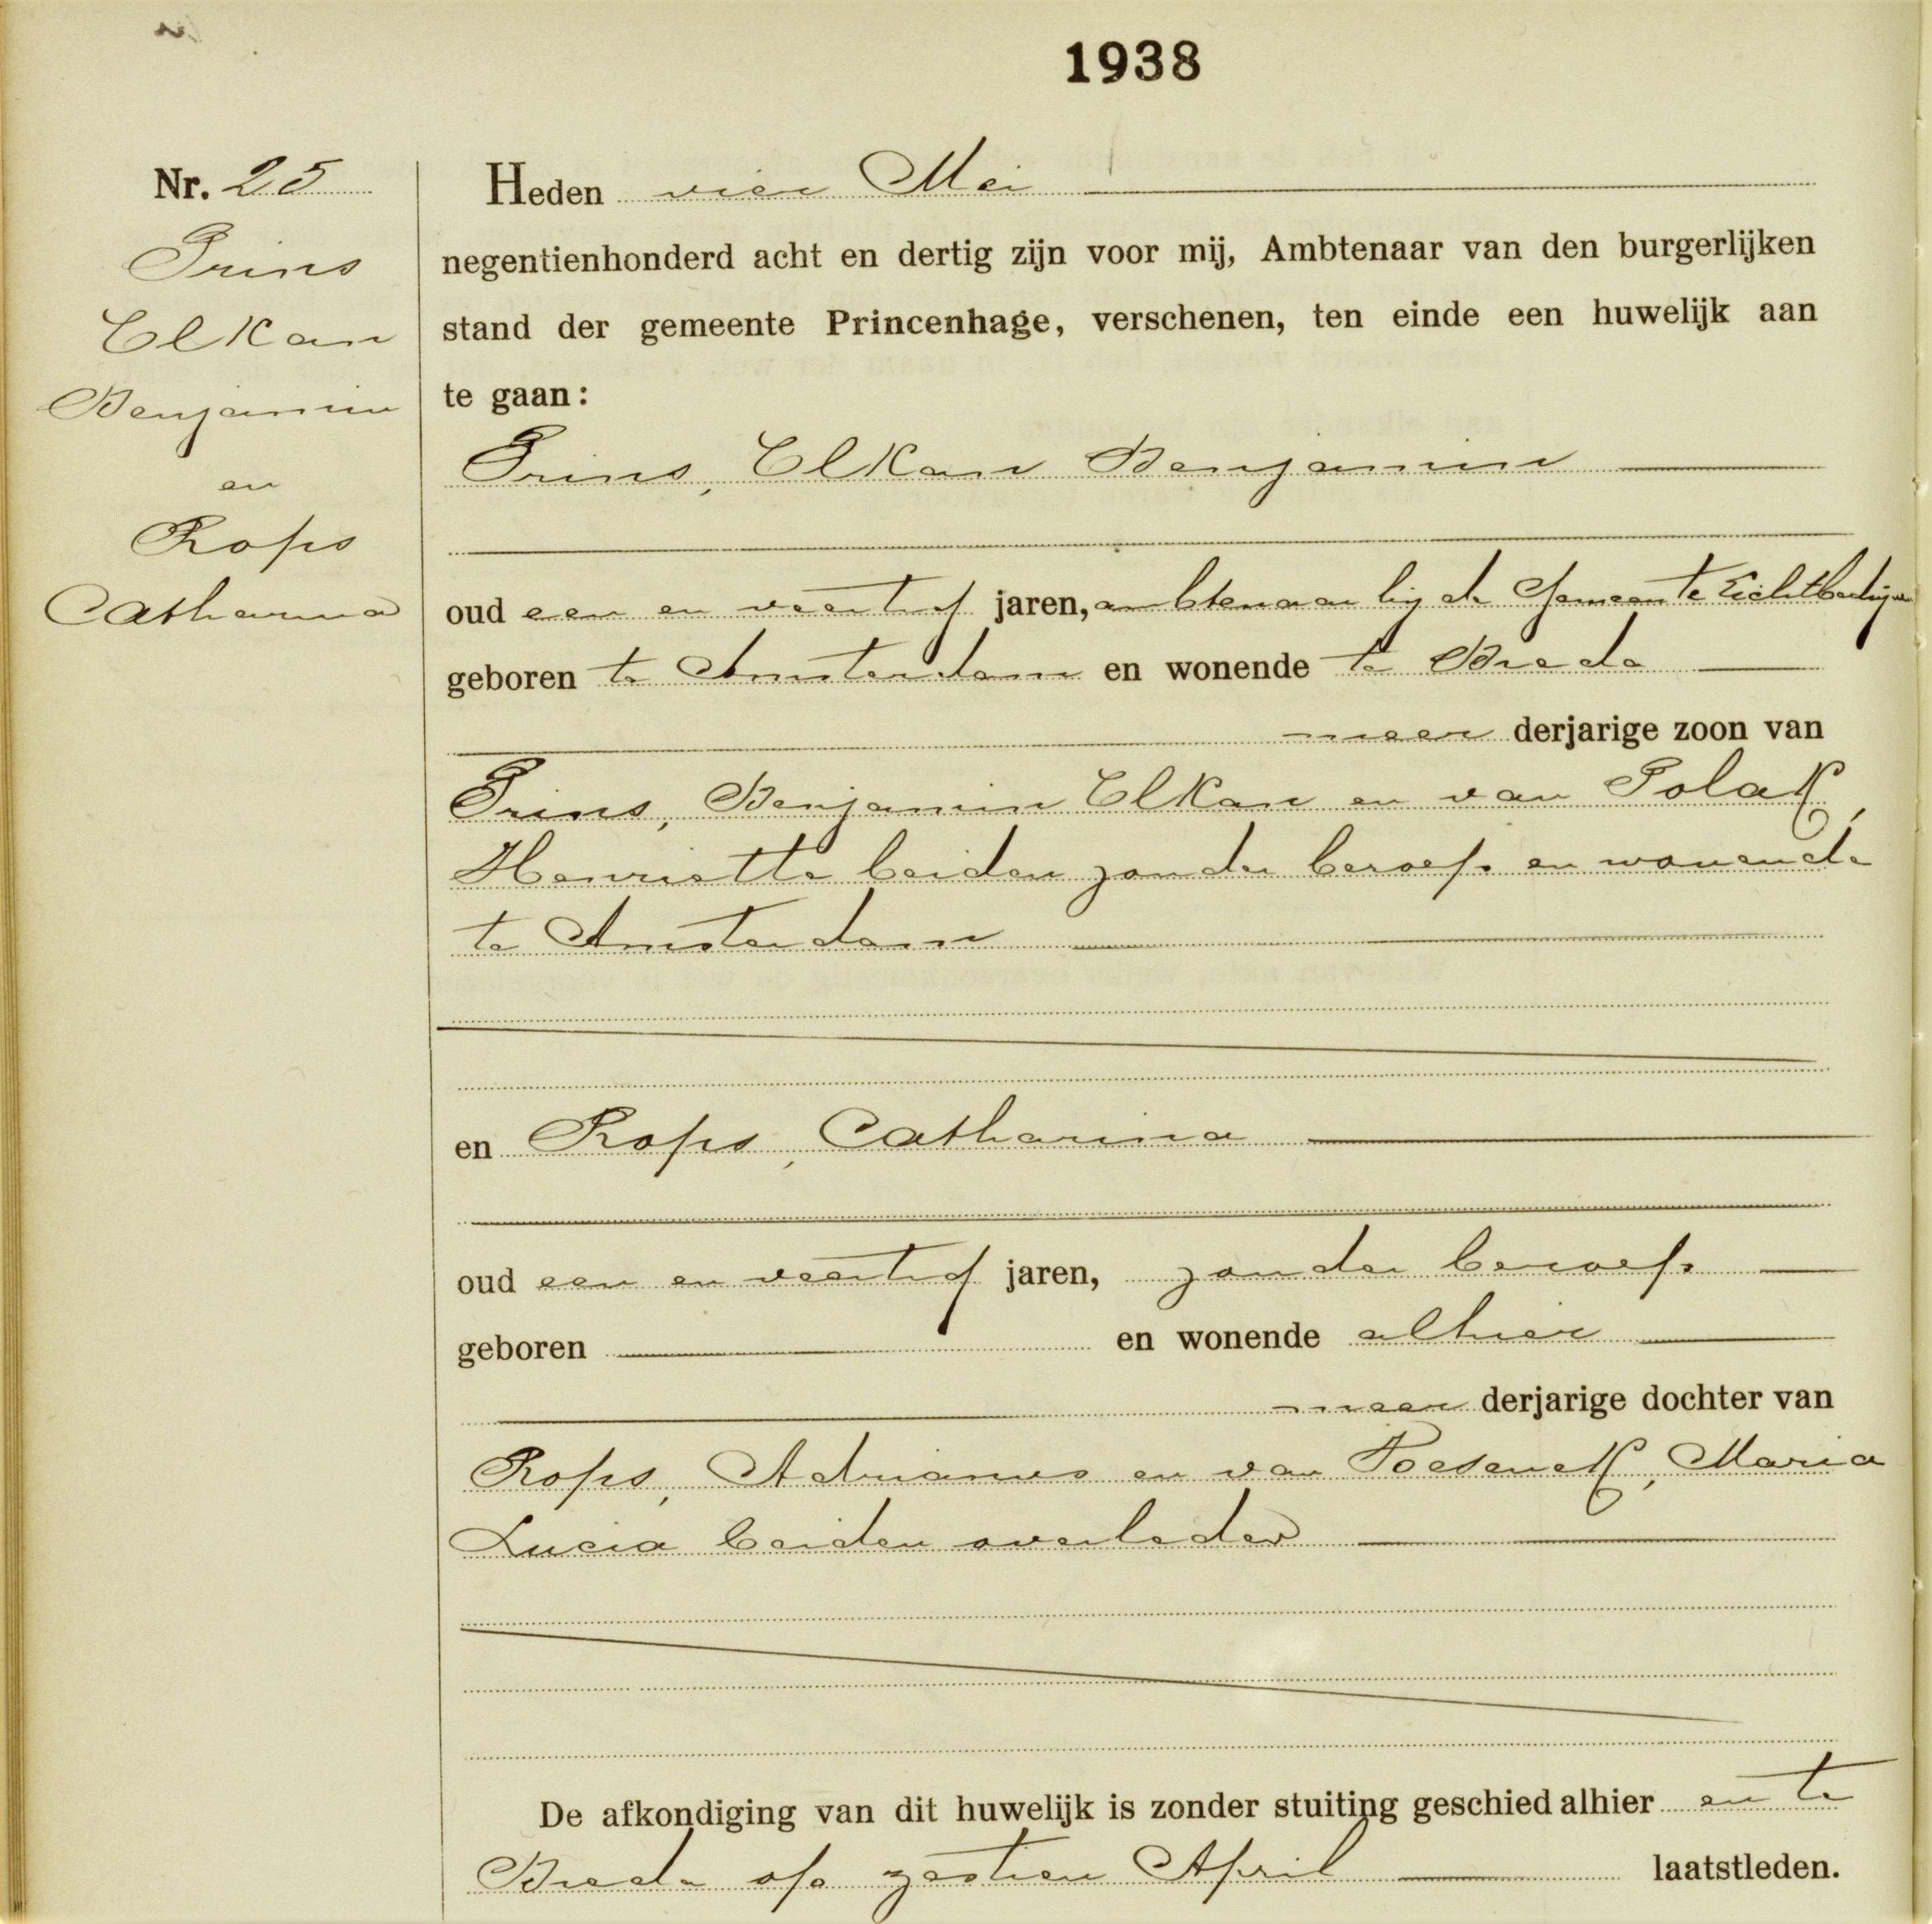 1938
Nr. 25
Prins
Elkan
Benjamin
en
Rops
Catharina
Heden vier Mei
negentienhonderd acht en dertig zijn voor mij, Ambtenaar van den burgerlijken
stand der gemeente Princenhage, verschenen, ten einde een huwelijk aan
te gaan:
Prins, Elkan Benjamin
oud een en veertig jaren, ambtenaar bij de Gemeente Lichtbedrijven
geboren te Amsterdam en wonende te Breda
meer derjarige zoon van
Prins, Benjamin Elkan en van Polak,
Henriette beiden zonder beroep en wonende
te Amsterdam
en Rops, Catharina
oud een en veertig jaren, zonder beroep
geboren en wonende alhier
meer derjarige dochter van
Rops, Adrianus en van Poesenek, Maria
Lucia beiden overleden
De afkondiging van dit huwelijk is zonder stuiting geschied alhier en te
Breda op zestien April laatstleden.